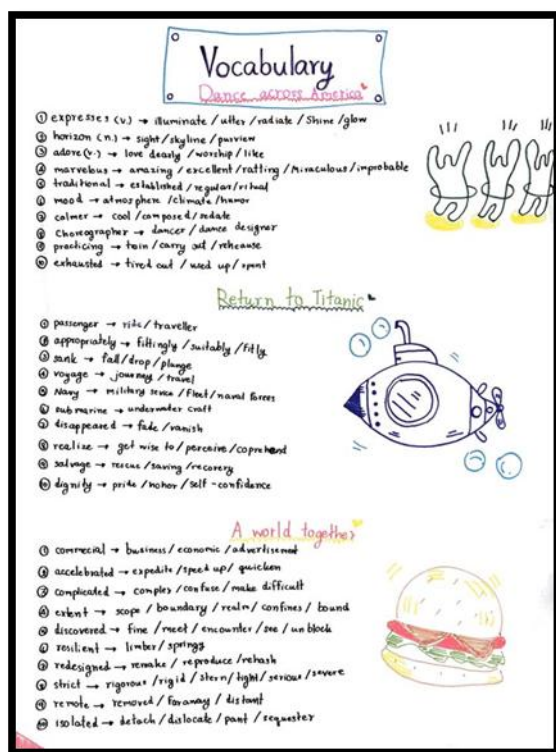 Vocabulary
Dance across America
① expresses (v.) → illuminate / utter / radiate / Shine / glow
② horizon (n.) → sight / skyline / purview
③ adore (v.) → love dearly / worship / like
④ marvelous → amazing / excellent / ratting / Miraculous / improbable
⑤ traditional → established / regular / ritual
⑥ mood → atmosphere / climate / humor
⑦ calmer → cool / composed / sedate
⑧ Choreographer → dancer / dance designer
⑨ practicing → train / carry out / rehearse
⑩ exhausted → tired out / used up / spent
Return to Titanic
① passenger → ride / traveller
② appropriately → fittingly / suitably / fitly
③ sank → fall / drop / plunge
④ voyage → journey / travel
⑤ Navy → military / Fleet / naval forces
⑥ submarine → underwater craft
⑦ disappeared → fade / vanish
⑧ realize → get wise to / perceive / coprehend
⑨ salvage → rescue / saving / recovery
⑩ dignity → pride / honor / self-confidence
A world together
① commercial → business / economic / advertisement
② accelerated → expedite / speed up / quicken
③ complicated → complex / confuse / make difficult
④ extent → scope / boundary / realm / confines / bound
⑤ discovered → fine / meet / encounter / see / unblock
⑥ resilient → limber / springy
⑦ redesigned → remake / reproduce / rehash
⑧ strict → rigorous / rigid / stern / tight / serious / severe
⑨ remote → removed / faraway / distant
⑩ isolated → detach / dislocate / part / sequester